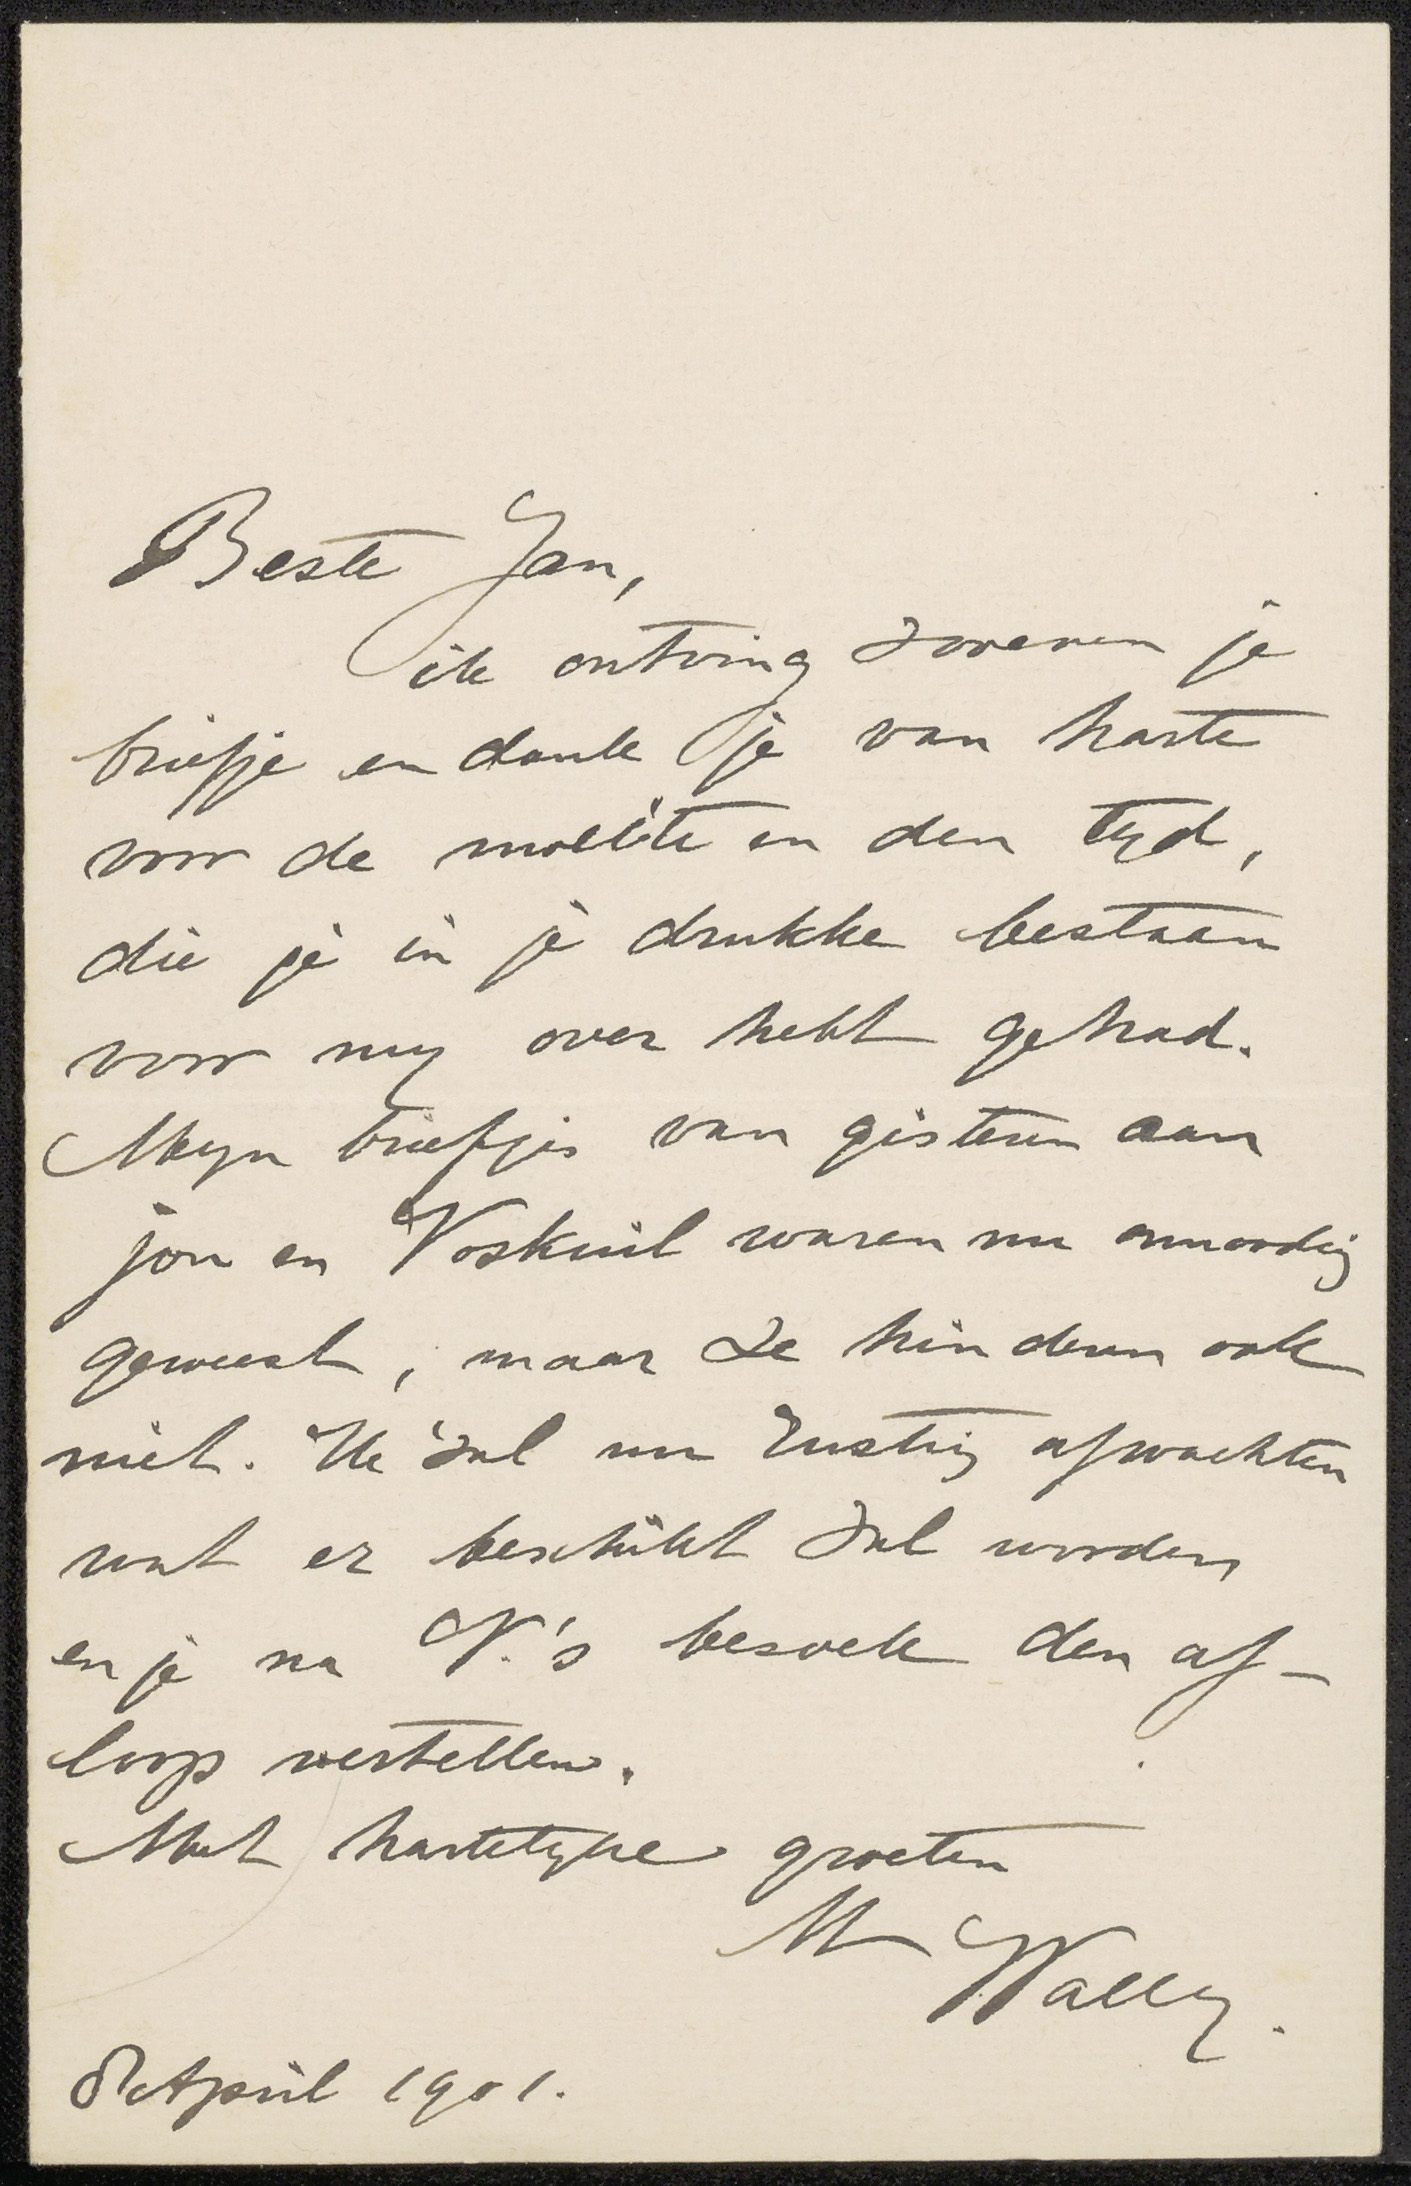 Beste Jan,
ik ontving zooeven je
briefje en dank je van harte
voor de moeite en den tyd,
die je in je drukke bestaan
voor my over hebt gehad.
Myn briefjes van gisteren aan
jou en Voskuil waren nu onnoodig
geweest, maar ze hinderen ook
niet. Ik zal nu rustig afwachten
wat er beschikt zal worden
en je na V.'s bezoek den af-
loop vertellen.
Met hartelyke groeten
Wally.
8 April 1901.